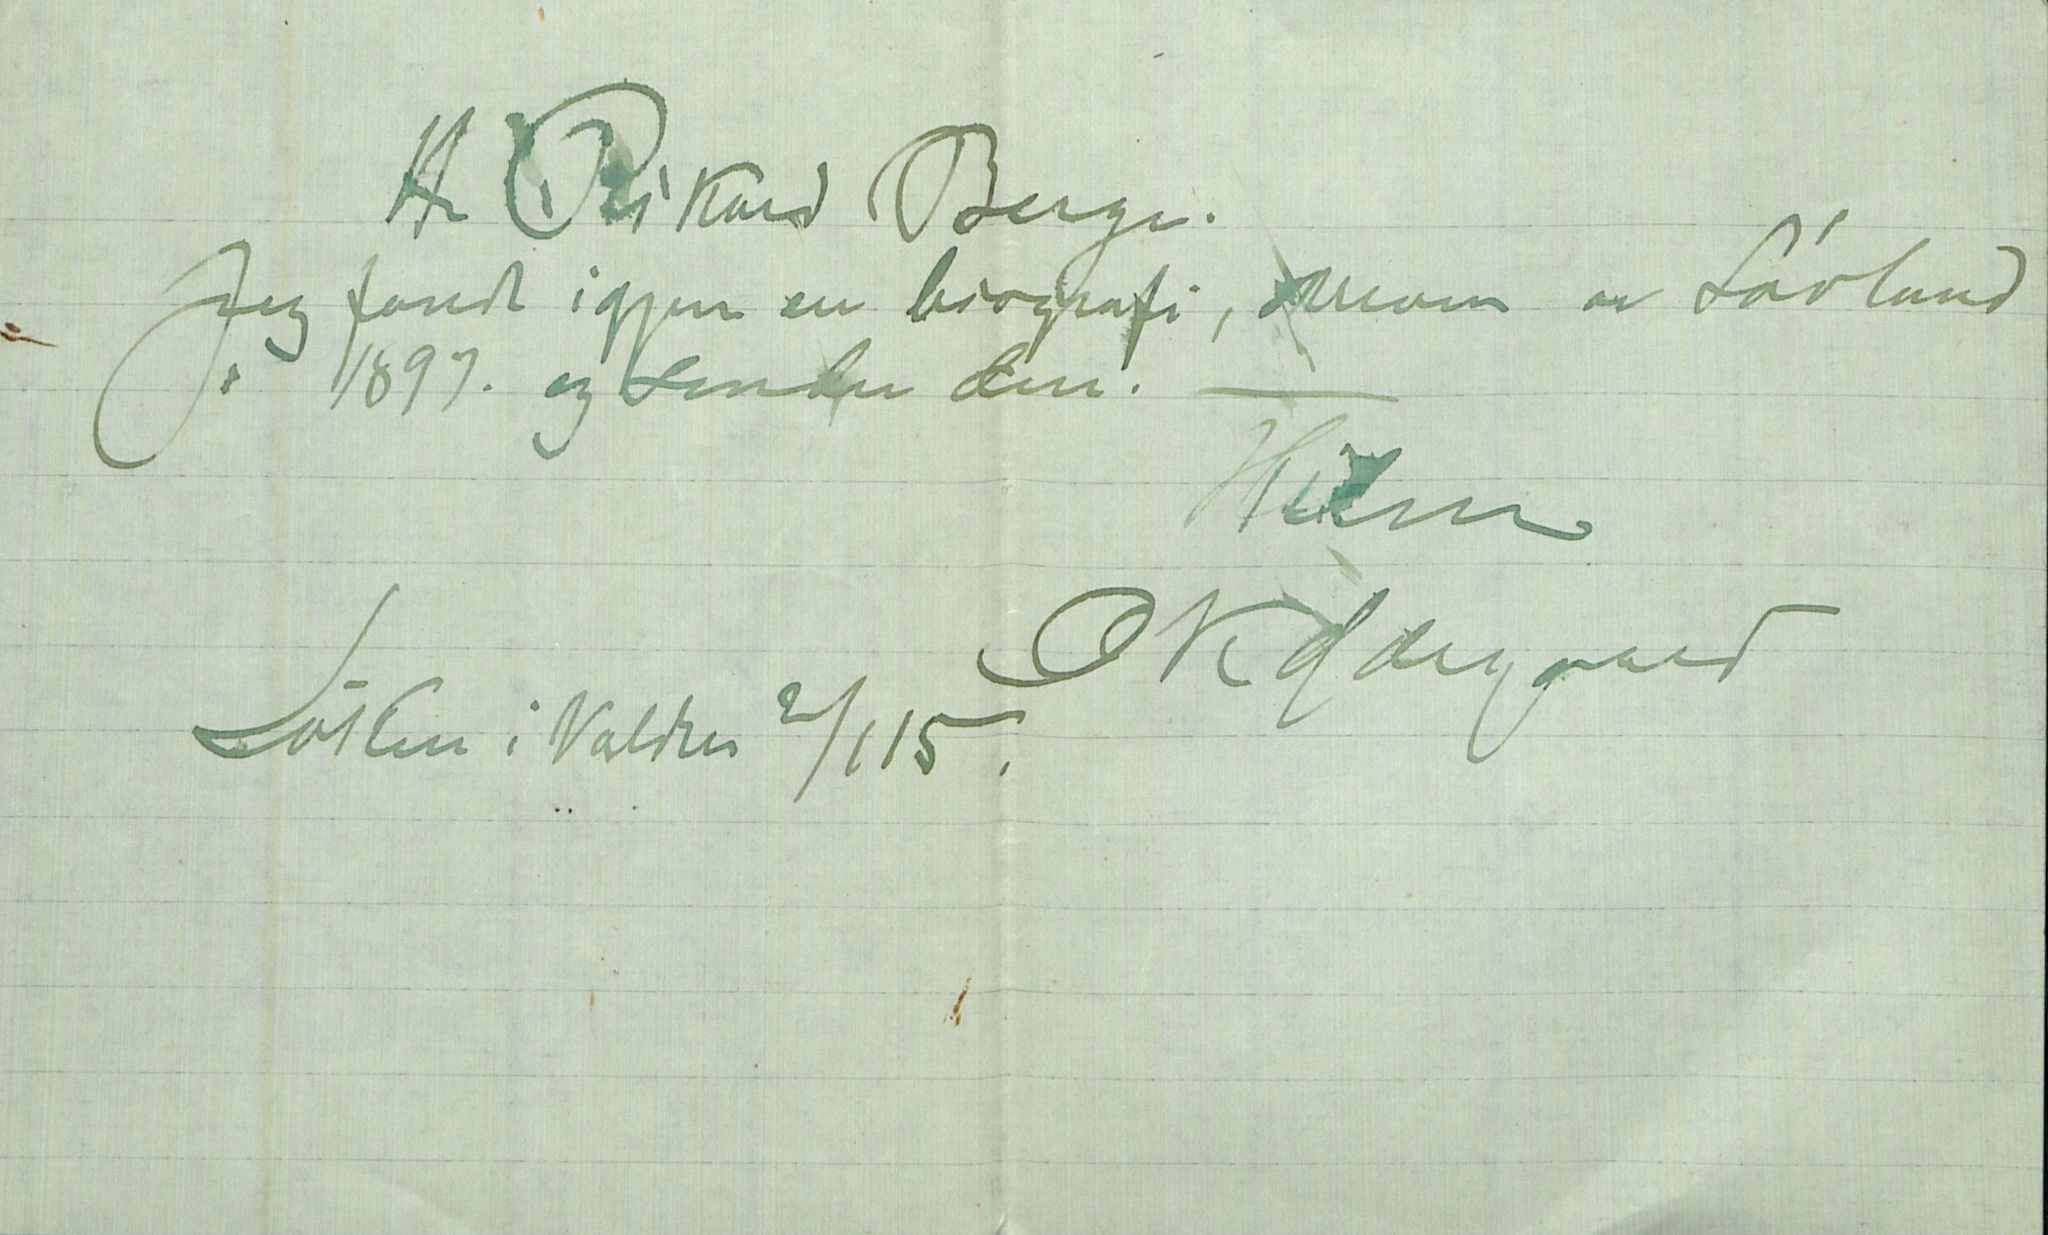 Hr Rikard Berge.
Jeg fandt igjen en biografi, skreven av Lövland
i 1897. og sender den. —
Hilsen
O K Ødegaard
Löken i Valdres 2/1 15.